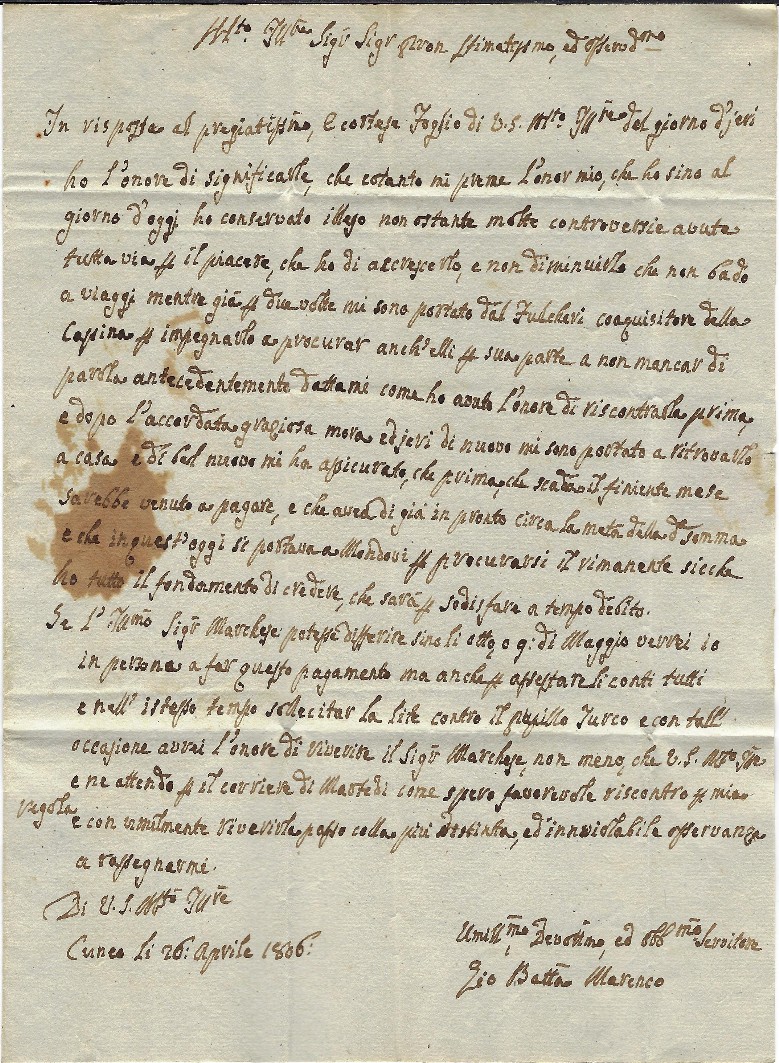 Mlto Illre Sigr Sigr Pron Stimatissmo, ed osservdmo
In risposta al pregiatissmo, e cortese Foglio di V.S. Mlto Illre del giorno d'jeri
ho l'onore di significarle, che cotanto mi preme l'onor mio, che ho sino al
giorno d'oggi ho conservato illeso non ostante molte controversie avute
tutta via per il piacere, che ho di accrescerlo, e non diminuirlo che non bado
a viaggi mentre già per due volte mi sono portato dal Fulcheri coaquisitore della
Cassina per impegnarlo a procurar anch'elli per sua parte a non mancar di
parola antecedentemente dattami come ho avuto l'onore di riscontrarla prima,
e dopo l'accordata graziosa mora ed jeri di nuovo mi sono portato a ritrovarlo
a casa e di bel nuovo mi ha assicurato, che prima, che scada il finiente mese
sarebbe venuto a pagare, e che avea di già in pronto circa la metà della da somma
e che in quest'oggi si portava a Mondovi per procurarsi il rimanente sicche
ho tutto il fondamento di credere, che sarà per sodisfare a tempo debito.
Se l'Illmo Sigr Marchese potesse differire sino li otto, o 9: di Maggio verrei io
in persona a far questo pagamento ma anche per assestare li conti tutti
e nell'istesso tempo sollecitar la lite contro il pupillo Turco e con tall'
occasione avrei l'onore di riverire il Sigr Marchese, non meno, che V.S. Mlto Illre
e ne attendo per il corriere di Martedi come spero favorevole riscontro per mia
regola
e con umilmente riverirla passo colla più distinta, ed innviolabile osservanza
a rassegnarmi.
Di V.S. Mlto Illre
Cuneo li 26: Aprile 1806:
Umillmo, Devotmo, ed obblmo Servitore
Gio Batta Marenco